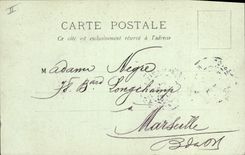 II
CARTE POSTALE
Ce côté est exclusivement réservé à l'adresse
Madame Nègre
78 Bard Longchamp
Marseille
B du Rh